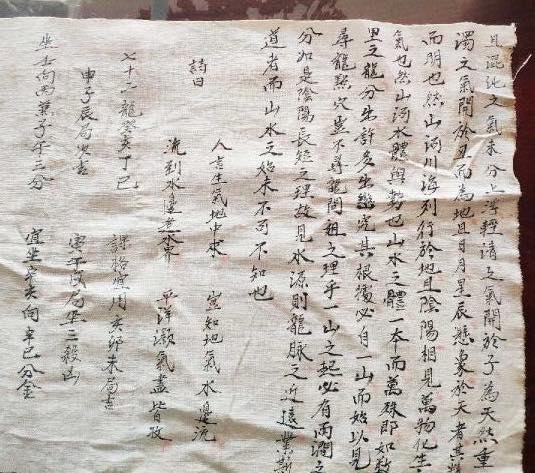 且混沌之氣未分上浮輕清之氣開於子為天然重
濁之氣開於丑而為地且日月星辰懸象於天者其
而明也然山河川海列行於地且陰陽相見萬物化生
氣也然山河水體與勢也山水之體一本而萬殊即如數
里之龍分出許多出岔究其根獨必自一山而始以見
尋龍點穴豈不尋龍問祖之理乎一山之起必有兩澗之
分如是陰陽長短之理故見水源則龍脈之近遠業
道者而山水之始末不可不知也
詩曰
人言生氣地中求 豈知地氣水邊流
流到水邊是水界 平洋灝氣盡皆收
七十二龍癸亥丁巳 課胎運用亥卯未局吉
申子辰局次吉 寅午戌局犯三殺凶
坐壬向丙兼子午三分 宜坐辛亥向辛巳分金